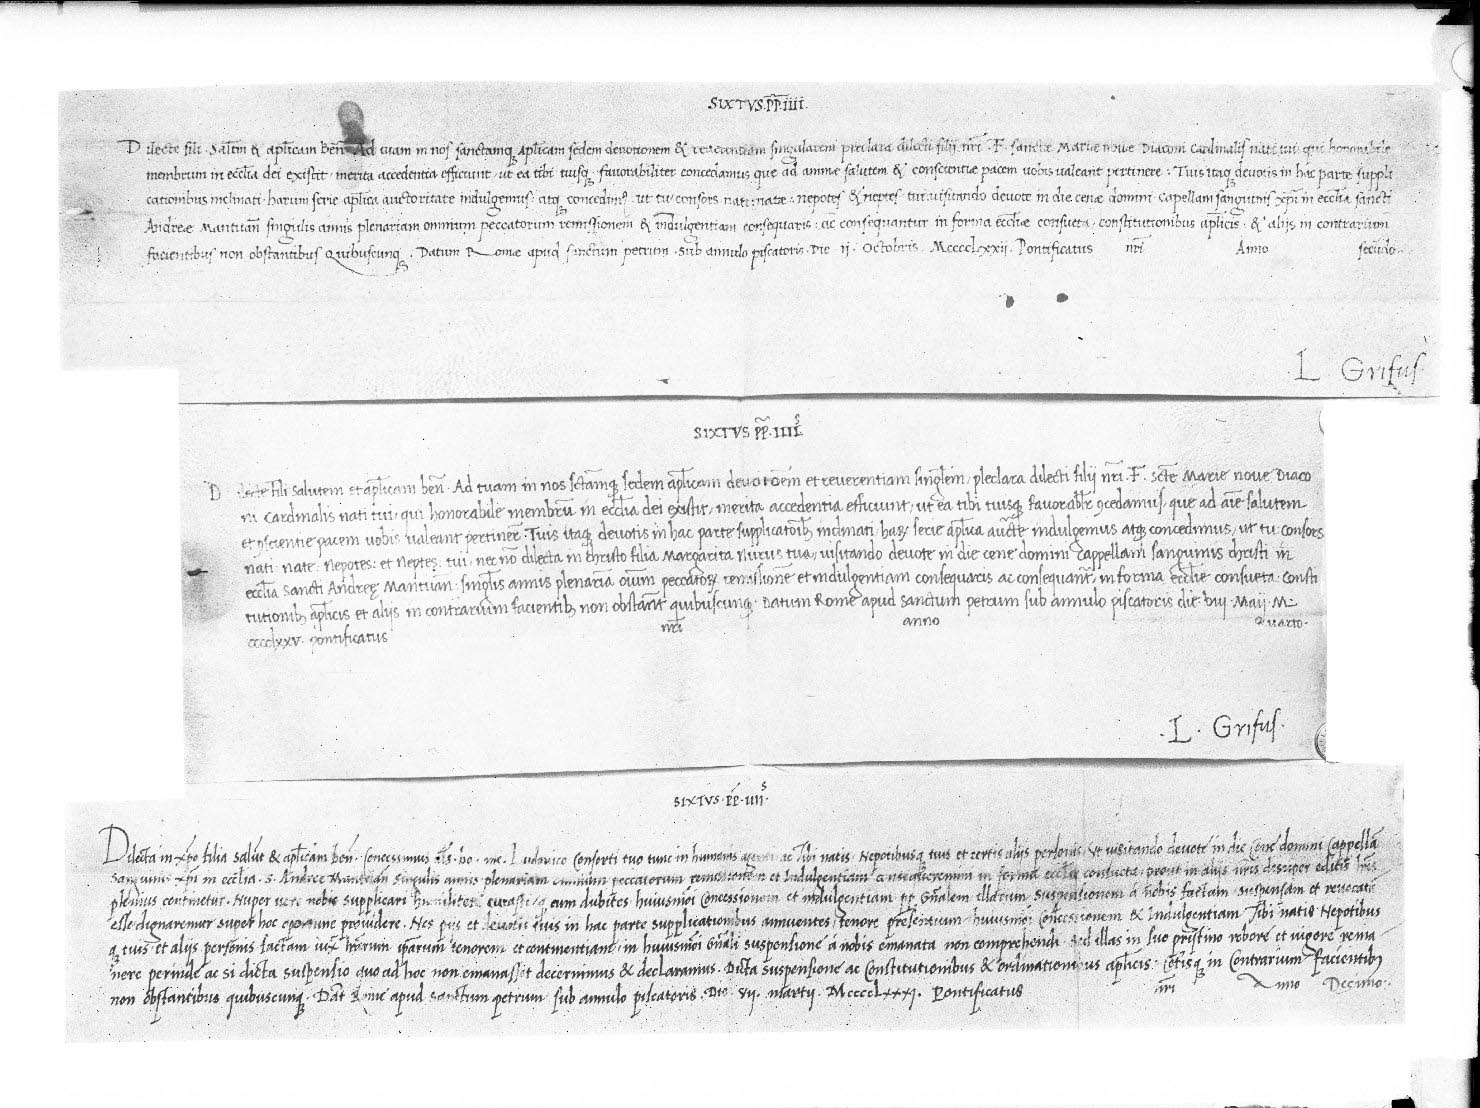 SIXTVS.PP̄.iiii.
Dilecte fili. Salt̄m & apl̄icam ben̄. Ad tuam in nos sanctamq; apl̄icam sedem deuotionem & reuerentiam singularem preclara dilecti filij nr̄i. F. sanctæ Mariæ nouæ Diaconi Cardinalis nati tui. qui honorabile
membrum in eccl̄ia dei existit. merita accedentia efficiunt. ut ea tibi tuisq; fauorabiliter concedamus que ad animæ salutem & conscientiæ pacem uobis ualeant pertinere. Tuis itaq; deuotis in hac parte suppli
cationibus inclinati. harum serie apl̄ica auctoritate indulgemus. atq; concedimꝰ. ut tu consors nati: natæ: nepotes & neptes tui: uisitando deuote in die cenæ domini. Capellam sanguinis xp̄i in eccl̄ia sancti
Andreæ Mantuan̄ singulis annis plenariam omnium peccatorum remissionem & indulgentiam consequaris: ac consequantur in forma eccl̄iæ consueta. constitutionibus apl̄icis. & alijs in contrarium
facientibus non obstantibus Quibuscunq;. Datum Romæ apud sanctum petrum. Sub annulo piscatoris. Die ii. Octobris. Mcccclxxii. Pontificatus nr̄i Anno secūdo.
. L. Grifus.
SIXTVS PP̄. IIIIˢ.
Dilecte fili salutem et apl̄icam ben̄. Ad tuam in nos sctāmq; sedem apl̄icam deuotoēm et reuerentiam singl̄em, pleclara dilecti filij nr̄i. F. sctē Marie noue Diaco
ni Cardinalis nati tui, qui honorabile membrū in eccl̄ia dei existit, merita accedentia efficiunt, ut ea tibi tuisq; fauorabl̄r ꝯcedamus, que ad aīe salutem
et ꝯscientie pacem uobis ualeant pertinere. Tuis itaq; deuotis in hac parte supplicatoībꝫ inclinati, haꝝ serie apl̄ica auctt̄e indulgemus atq; concedimus, ut tu. consors
nati. nate. nepotes. et neptes. tui. nec nō dilecta in christo filia Margarita nurus tua, uisitando deuote in die cene domini cappellam sanguinis christi in
eccl̄ia Sancti Andreę Mantuan̄. singl̄is annis plenaria oīum peccatoꝝ remissionē et indulgentiam consequaris ac consequant̄, in forma eccl̄ie consueta. Consti
tutionibꝫ apl̄icis et alijs in contrarium facientibꝫ non obstant̄ quibuscunq;. Datum Rome apud Sanctum petrum sub annulo piscatoris die viij. Maij. M.
ccccLxxv. pontificatus nr̄i anno Quarto.
. L. Grifus.
SIXTVS. PP̄. IIIIˢ.
Dilecta in xp̄o filia salut̄ & apl̄icam ben̄. Concessimus als̄. bo. me. Ludouico Consorti tuo tunc in humanis agenti ac Tibi natis. Nepotibusq; tuis et certis alijs personis ut uisitando deuote in die Cene domini Cappellā
Sanguinis xp̄i in eccl̄ia. S. Andree Mantuan Singulis annis plenariam omnium peccatorum remissionem et Indulgentiam consequeremini in forma eccl̄ie consueta: prout in alijs nr̄is desuper editis lr̄is
plenius continetur. Nuper uero nobis supplicari humiliter curasti ut cum dubites huiusmōi Concessionem et indulgentiam pp̄ gn̄alem illarum Suspensionem a nobis factam. suspensam et reuocatā
esse dignaremur super hoc oportune prouidere. Nos pijs et deuotis tuis in hac parte supplicationibus annuentes, tenore presentium huiusmōi Concessionem & Indulgentiam Tibi natis Nepotibus
q; tuis et alijs personis factam iuxᵃ lr̄arum ip̄arum tenorem et continentiam, in huiusmōi Gn̄ali suspensione a nobis emanata non comprehendi. Sed illas in suo pr̄istino robore et uigore rema
nere perinde ac si dicta suspensio quo ad hoc non emanasset decernimus & declaramus. Dicta suspensione ac Constitutionibus & ordinationibus apl̄icis. Cet̄isq; in Contrarium facientibꝫ
non obstantibus quibuscunq;. Dat̄ Rome apud Sanctum petrum sub annulo piscatoris. Die vij. martij. MccccLxxxi. Pontificatus nr̄i Anno Decimo.